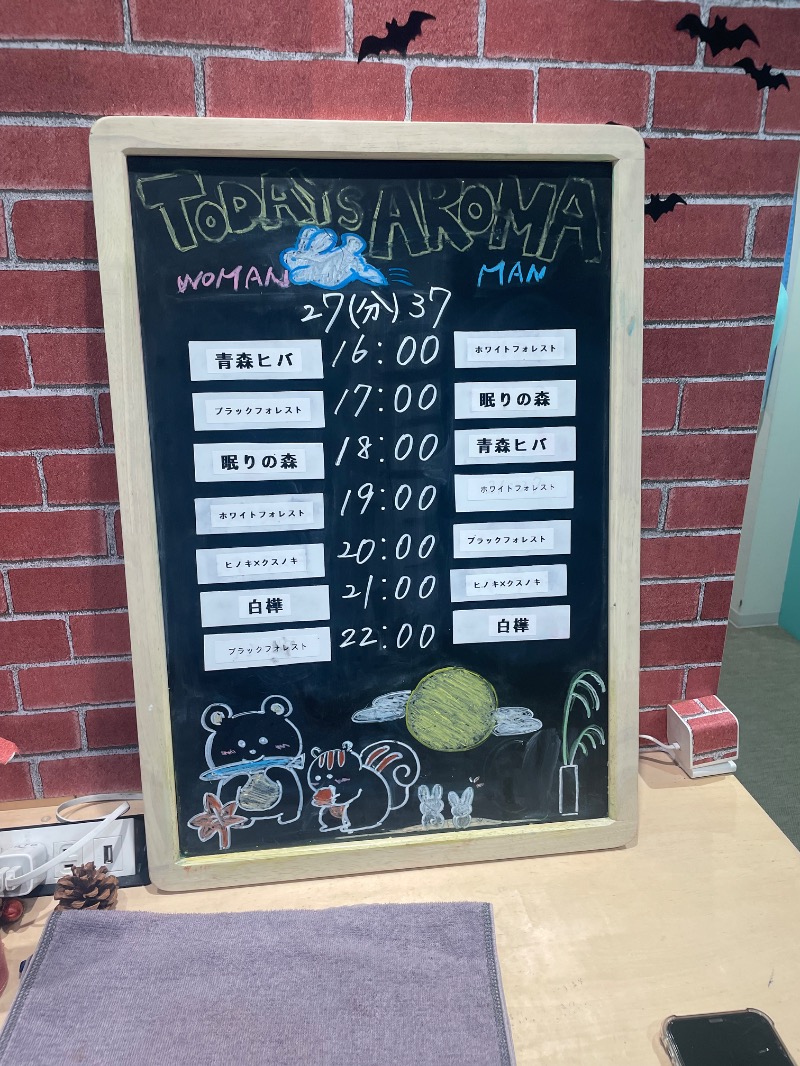 TODAY'S AROMA
WOMAN MAN
27(分)37
青森ヒバ 16:00 ホワイトフォレスト
ブラックフォレスト 17:00 眠りの森
眠りの森 18:00 青森ヒバ
ホワイトフォレスト 19:00 ホワイトフォレスト
ヒノキ×クスノキ 20:00 ブラックフォレスト
白樺 21:00 ヒノキ×クスノキ
ブラックフォレスト 22:00 白樺